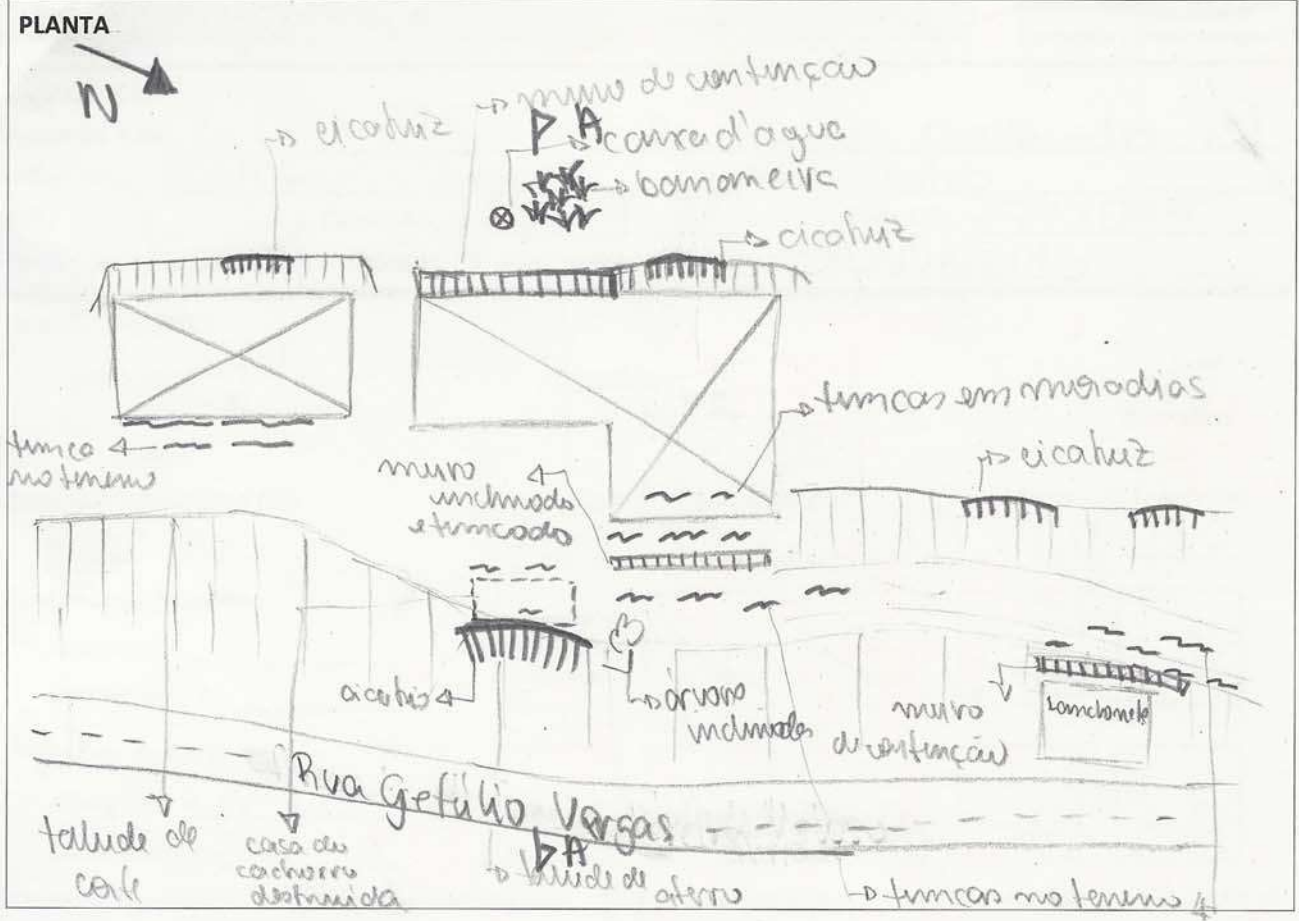 PLANTA
N
muro de contenção
cicatriz
A
caixa d'agua
bananeira
cicatriz
trincas em moradias
trinca
no terreno
muro
inclinado
e trincado
cicatriz
cicatriz
árvore
inclinada
muro
de contenção
Lanchonete
Rua Getúlio Vargas
talude de
corte
casa de
cachorro
destruida
A
talude de
aterro
trincas no terreno